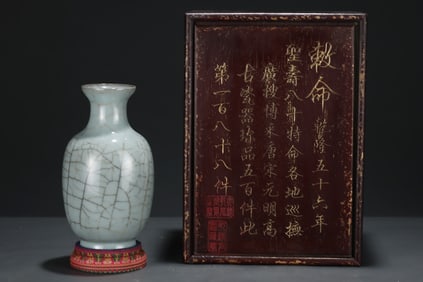 敕命乾隆五十六年
聖壽八旬特命各地巡撫
廣搜博采唐宋元明高
古瓷器珍品五百件此
第一百八十八件